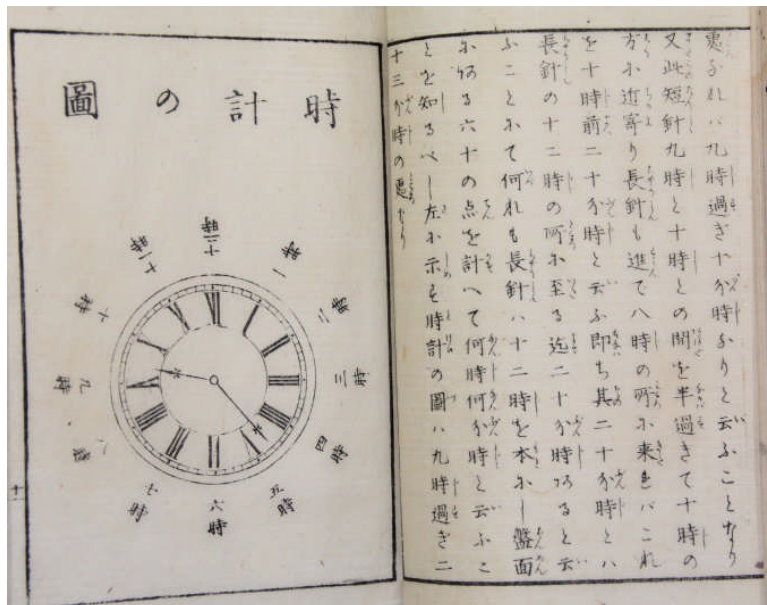 處なれバ九時過ぎ十分時なりと云ふことなり
又此短針九時と十時との間を半過ぎて十時の
方に近寄り長針も進で八時の所に来れバこれ
を十時前二十分時と云ふ即ち其二十分時とハ
長針の十二時の所に至る迄二十分時あると云
ふことにて何れも長針ハ十二時を本にし盤面
にある六十の点を計へて何時何分時と云ふこ
とを知るべし左に示す時計の圖ハ九時過ぎ二
十三分時の處なり
時計の圖
十二時
一時
二時
三時
四時
五時
六時
七時
八時
九時
十時
十一時
XII
I
II
III
IIII
V
VI
VII
VIII
IX
X
XI
十一